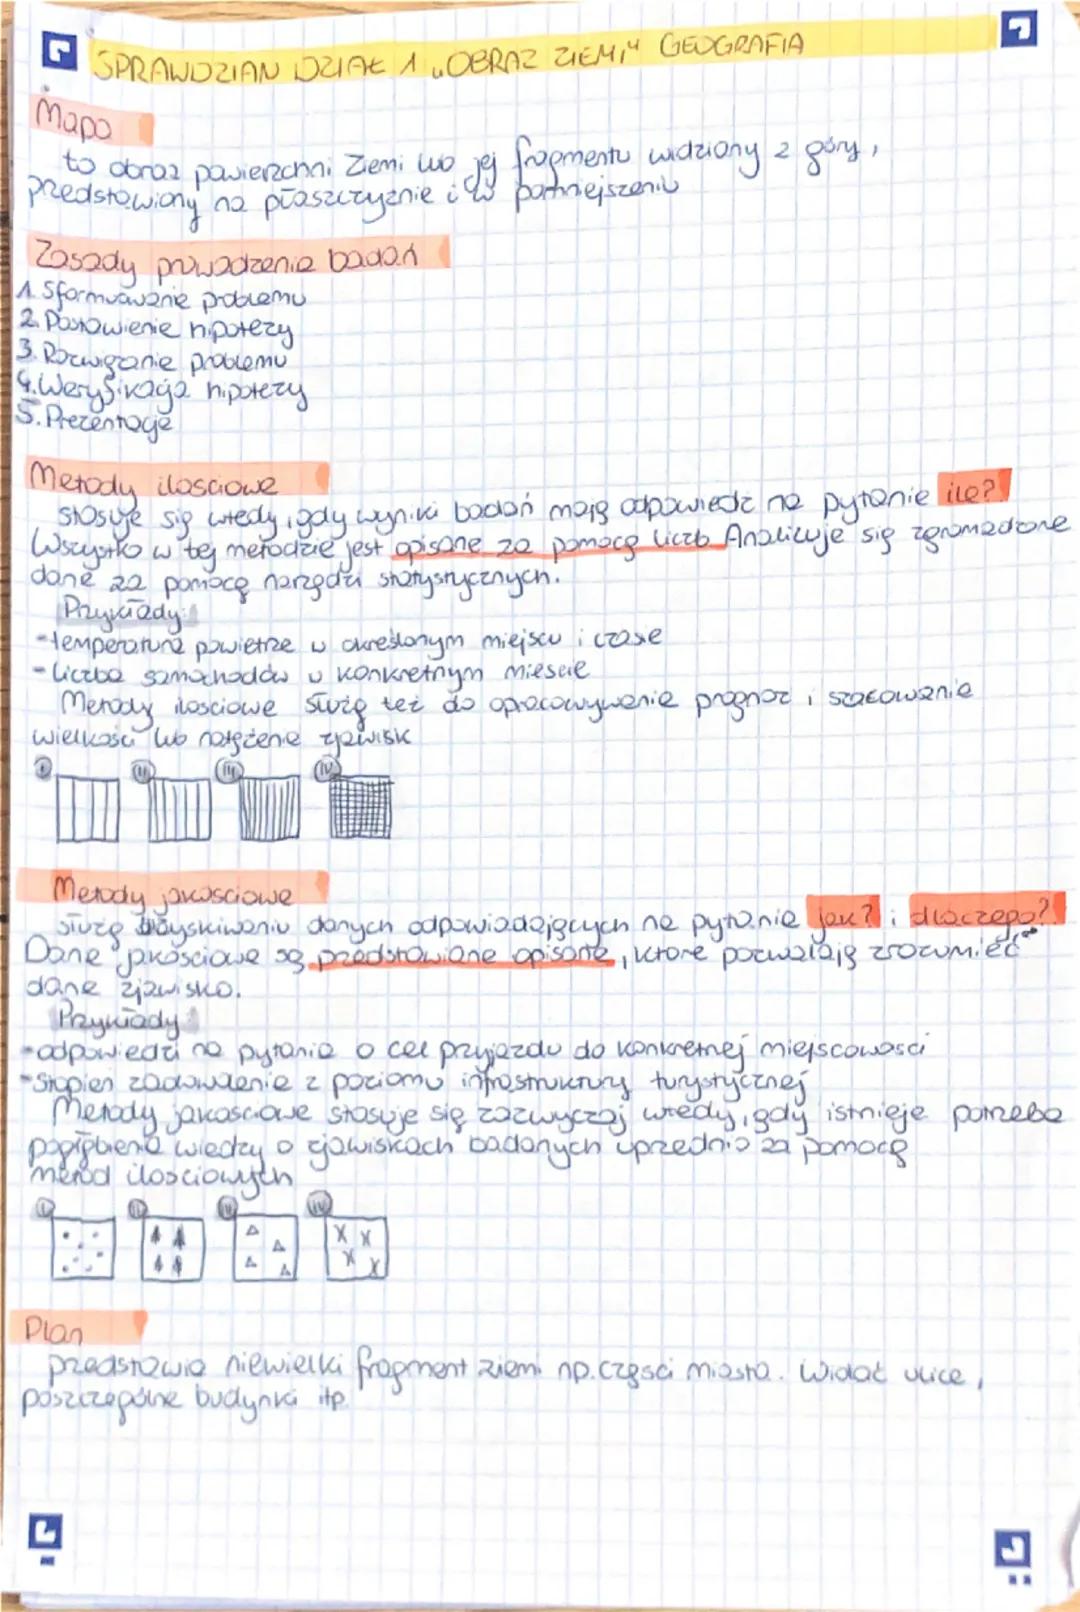 SPRAWDZIAN DZIAŁ 1 „OBRAZ ZIEMI" GEOGRAFIA
Mapa
to obraz powierzchni Ziemi lub jej fragmentu widziany z góry,
przedstawiony na płaszczyźnie i w pomniejszeniu
Zasady prowadzenia badań
1. Sformuowanie problemu
2. Postawienie hipotezy
3. Rozwiązanie problemu
4. Weryfikacja hipotezy
5. Prezentacje
Metody ilościowe
stosuje się wtedy, gdy wyniki badań mają odpowiedź na pytanie ile?
Wszystko w tej metodzie jest opisane za pomocą liczb. Analizuje się zgromadzone
dane za pomocą narzędzi statystycznych.
Przykłady:
-temperatura powietrza w określonym miejscu i czasie
-liczba samochodów w konkretnym mieście
Metody ilościowe służą też do opracowywania prognoz i szacowania
wielkości lub natężenia zjawisk
I II III IV
Metody jakościowe
służą uzyskiwaniu danych odpowiadających na pytanie jak? i dlaczego?
Dane jakościowe są przedstawiane opisane, które pozwalają zrozumieć
dane zjawisko.
Przykłady:
-odpowiedzi na pytania o cel przyjazdu do konkretnej miejscowości
-Stopień zadowolenia z poziomu infrastruktury turystycznej
Metody jakościowe stosuje się zazwyczaj wtedy, gdy istnieje potrzeba
pogłębienia wiedzy o zjawiskach badanych uprzednio za pomocą
metod ilościowych
I II III IV
Plan
przedstawia niewielki fragment ziemi np. części miasta. Widać ulice,
poszczególne budynki itp.